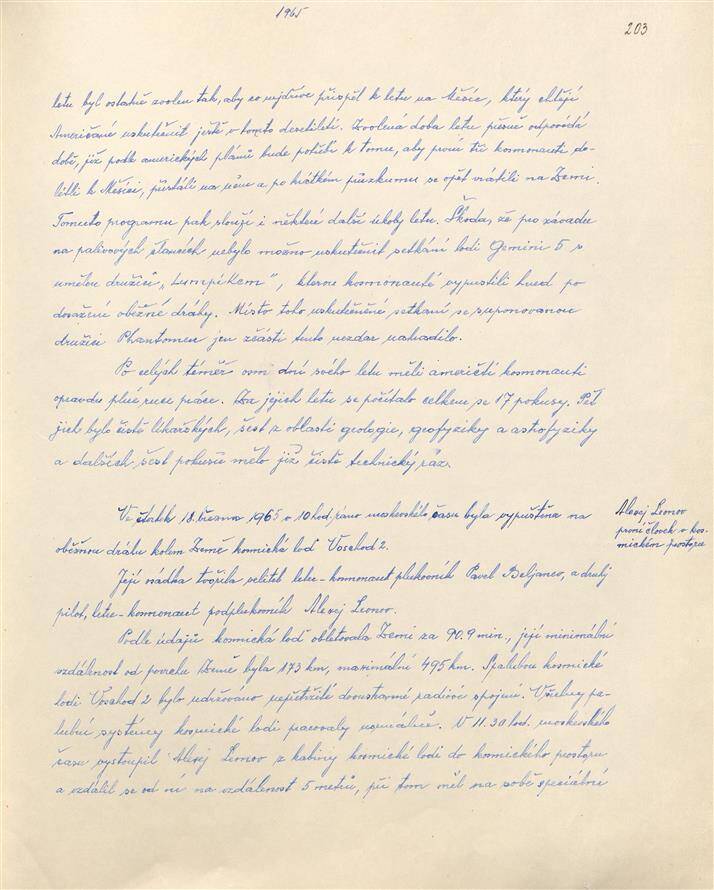 1965
203
letu byl ostatně zvolen tak, aby co nejdříve přispěl k letu na Měsíc, který chtějí
Američané uskutečnit ještě v tomto desetiletí. Zvolená doba letu přesně odpovídá
době, jíž podle amerických plánů bude potřebí k tomu, aby první tři kosmonauti do-
létli k Měsíci, přistáli na něm a po krátkém průzkumu se opět vrátili na Zemi.
Tomuto programu pak slouží i některé další úkoly letu. Škoda, že pro závadu
na palivových článcích nebylo možno uskutečnit setkání lodi Gemini 5 s
umělou družicí „Lumpíkem", kterou kosmonauté vypustili hned po
dosažení oběžné dráhy. Místo toho uskutečněné setkání se suponovanou
družicí Phantomen jen zčásti tento nezdar nahradilo.
Po celých téměř osm dní svého letu měli američtí kosmonauti
opravdu plné ruce práce. Za jejich letu se počítalo celkem se 17 pokusy. Pět
jich bylo čistě lékařských, šest z oblasti geologie, geofyziky a astrofyziky
a dalších šest pokusů mělo již čistě technický ráz.
Ve čtvrtek 18. března 1965 v 10 hod. ráno moskevského času byla vypuštěna na
oběžnou dráhu kolem Země kosmická loď Voschod 2.
Alexej Leonov
první člověk v kos-
mickém prostoru
Její osádka tvořila velitel letec-kosmonaut plukovník Pavel Beljanov, a druhý
pilot, letec-kosmonaut podplukovník Alexej Leonov.
Podle údajů kosmická loď obletovala Zemi za 90.9 min., její minimální
vzdálenost od povrchu Země byla 173 km, maximální 495 km. S palubou kosmické
lodi Voschod 2 bylo udržováno nepřetržité dvoustranné radiové spojení. Všechny pa-
lubní systémy kosmické lodi pracovaly normálně. V 11.30 hod. moskevského
času vystoupil Alexej Leonov z kabiny kosmické lodi do kosmického prostoru
a vzdálil se od ní na vzdálenost 5 metrů, při tom měl na sobě speciální